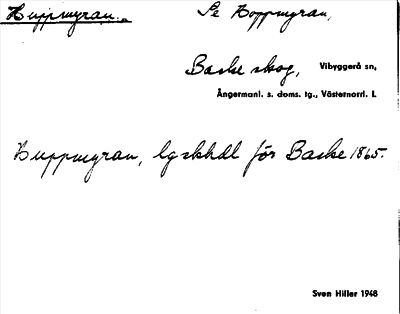 Huppmyran. Se Hoppmyran,
Baske skog, Vibyggerå sn,
Ångermanl. s. doms. tg., Västernorrl. l.
Huppmyran, lgskhdl för Baske 1865.
Sven Hiller 1948